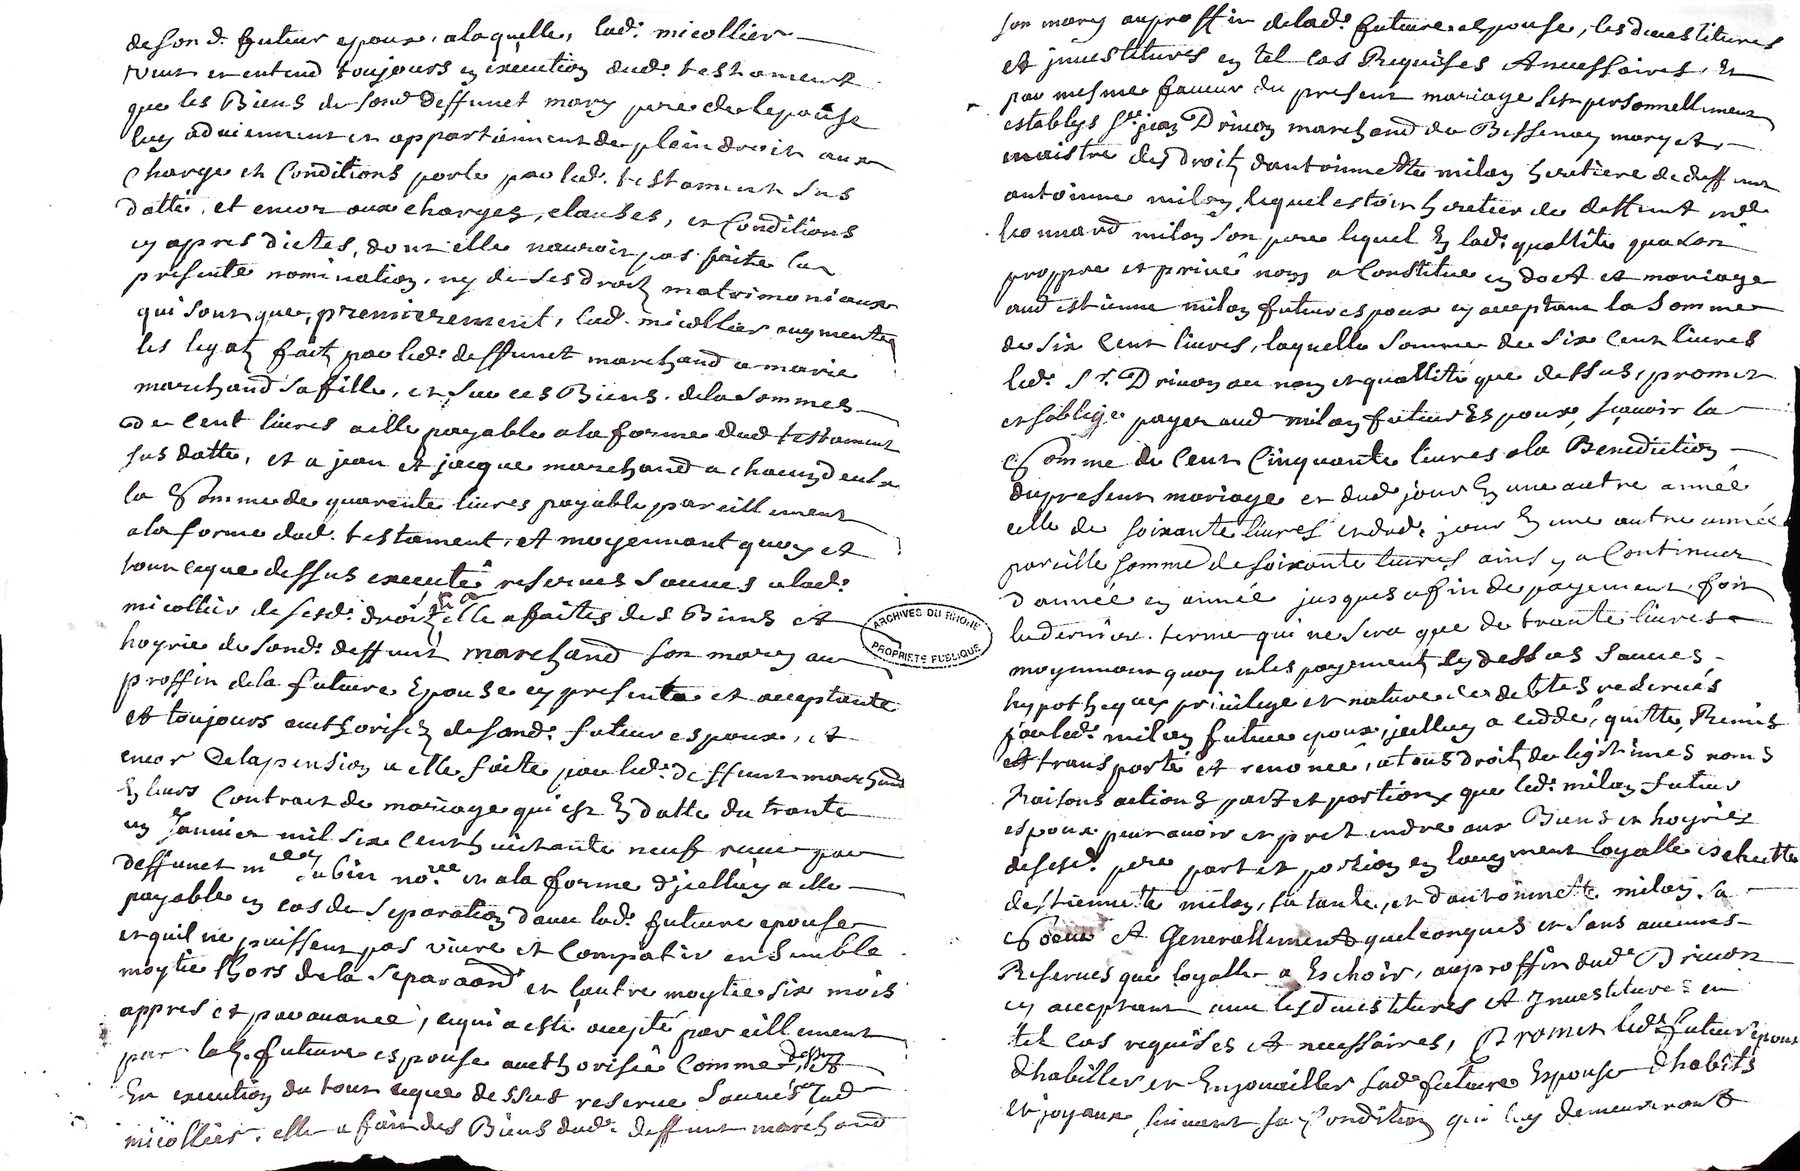 de son d. futur epoux, a laquelle, lad. micollier
veut et entend toujours en execution dud. testament
que les Biens de sond. deffunct mary pere de lepouse
luy adviennent et appartiennent de plein droit aux
charges et Conditions porte par led. testament sus
datté, et encor aux charges, clauses, et Conditions
cy apres dictes, dont elle nauroit pas faite la
presente nomination, ny de ses droitz matrimoniaux
qui sont que, premierement, lad. micollier augmente
les legatz faitz par led. deffunct marchand a marie
marchand sa fille, et sur ces Biens, de la sommes
de cent livres a elle payable a la forme dud testament
sus datté, et a jean et jacque marchand a chacun deux
la Somme de quarente livres payable pareillement
a la forme dud. testament, et moyennant quoy et
tout ce que dessus executé reserves sauves a lad.
micollier de sesd. droitz elle a faites des Biens et
hoyrie de sond. deffunct marchand son mary au
proffin de la future Epouse cy presente et acceptante
et toujours authorisez de sond. futur espoux, et
encor De la pension a elle faite par led. deffunt marchand
En leurs Contract de mariage qui est En datte du trante
un Janvier mil six cent huictante neuf receu par
deffunct me Aubin nore et a la forme d'jcelluy a elle
payable en cas de separation davec lad. future epouse
et quil ne puissent pas vivre et Compatir ensemble
moytie lhors de la separaõn et lautre moytie six mois
appres et par avance, ce qui a esté accepté pareillement
par lad. future espouse authorisée Comme dessus et
En execution de tout ce que dessus reserve sauves lad
micollier, elle a fait des Biens dud. deffunt marchand
son mary au proffin de lad. future espouse, les devestitures
et jnvestitures en tel cas Requises et necessaires, Et
par mesme faveur du present mariage sest personnellement
establys Sr. jean Drivon marchand de Bessenay mary et
maistre des droitz dantoinette milan heritiere de deffunt
antoinne milan, lequel estoit heritier de deffunt
Leonnard milan son pere lequel En lad. quallité qua son
proppre et privé nom a Constitue en doct et mariage
aud estienne milan futur espoux cy acceptant la somme
de six Cent livres, laquelle somme de six cent livres
led. Sr. Drivon au nom et quallité que dessus, promet
et soblige payer aud milan futur Espoux, sçavoir la
Somme de Cent Cinquante livres a la Benediction
du present mariage et dud. jour En une autre année
celle de soixante livres et dud. jour En une autre année
pareille somme de soixante livres ainsy a Continuer
d'année en année jusques a fin de payement, fort
le dernier terme qui ne sera que de trante livres
moyennant quoy et les payements cy dessus sauves
hypotheques privilege et nature de debtes reservés
par led. milan futur epoux, jcelluy a ceddé, quitté, Remis
et transporté et renoncé, a tous droitz de legitimes noms
Raisons actions partz et portions que led. milan futur
espoux peut avoir et pretendre aux Biens et hoyries
de sesd. pere part et portion en laugment loyalle escheutte
destiennette milan, sa tante, et dantoinnette milan, sa
Soeur et Generallement quelconques et sans aucunes
Reserves que loyalle a Eschoir, au proffin dud. Drivon
cy acceptant avec les devestitures et Jnvestitures en
tel cas requises et necessaires, Promet led. futur Epoux
dhabiller et Enjouailler lad. future Espouse dhabits
et joyaux, suivant sa Condition qui luy demeureront
ARCHIVES DU RHONE
PROPRIETE PUBLIQUE